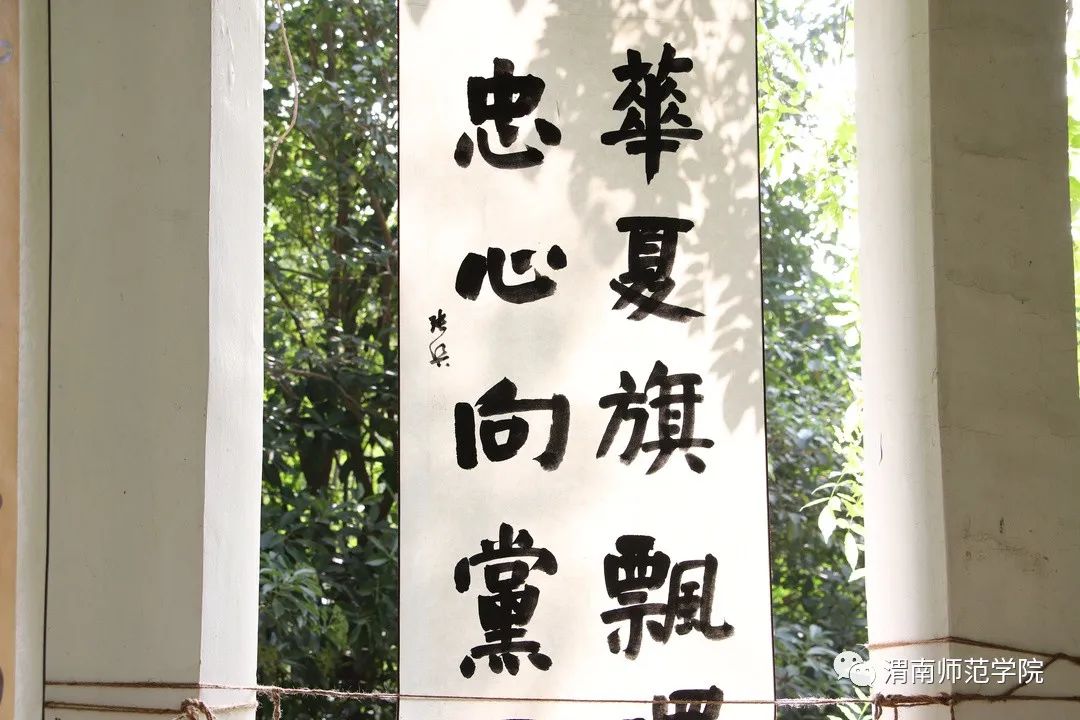 華夏旗飄
忠心向黨
渭南师范学院